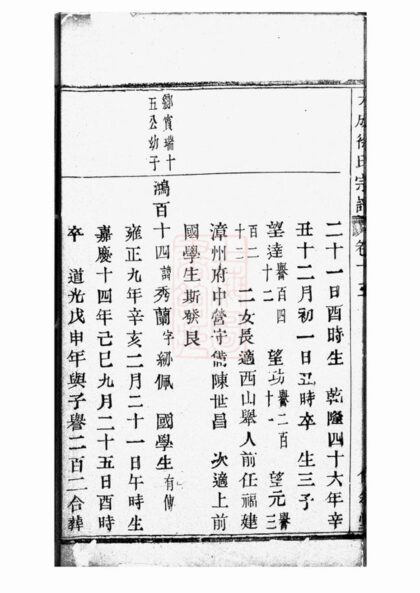 二十一日酉時生 乾隆四十六年辛
丑十二月初一日丑時卒 生三子
望達譽百四十二 望功譽二百十一 望元譽三百二十二
二女長適西山舉人前任福建
漳州府中營守備陳世昌 次適上前
國學生斯發艮
鄉賓瑞十五公幼子
鴻百十四諱秀蘭字紉佩 國學生有傳
雍正九年辛亥二月二十一日午時生
嘉慶十四年己巳九月二十五日酉時
卒 道光戊申年與子譽二百二合葬